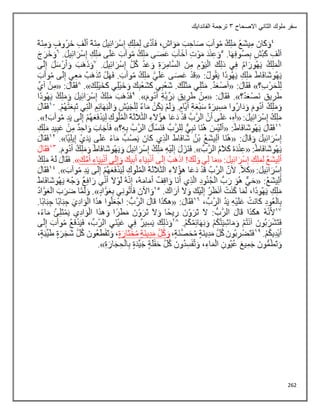 سفر ملوك الثاني الاصحاح ٣ ترجمة الفاندايك
٤وَكَانَ مِيشَعُ مَلِكُ مُوآبَ صَاحِبَ مَوَاشٍ، فَأَدَّى لِمَلِكِ إِسْرَائِيلَ مِئَةَ أَلْفِ خَرُوفٍ وَمِئَةَ
أَلْفِ كَبْشٍ بِصُوفِهَا. ٥وَعِنْدَ مَوْتِ أَخْآبَ عَصَى مَلِكُ مُوآبَ عَلَى مَلِكِ إِسْرَائِيلَ. ٦وَخَرَجَ
الْمَلِكُ يَهُورَامُ فِي ذلِكَ الْيَوْمِ مِنَ السَّامِرَةِ وَعَدَّ كُلَّ إِسْرَائِيلَ. ٧وَذَهَبَ وَأَرْسَلَ إِلَى
يَهُوشَافَاطَ مَلِكِ يَهُوذَا يَقُولُ: «قَدْ عَصَى عَلَيَّ مَلِكُ مُوآبَ. فَهَلْ تَذْهَبُ مَعِي إِلَى مُوآبَ
لِلْحَرْبِ؟» فَقَالَ: «أَصْعَدُ. مَثَلِي مَثَلُكَ. شَعْبِي كَشَعْبِكَ وَخَيْلِي كَخَيْلِكَ». ٨فَقَالَ: «مِنْ أَيِّ
طَرِيق نَصْعَدُ؟». فَقَالَ: «مِنْ طَرِيقِ بَرِّيَّةِ أَدُومَ». ٩فَذَهَبَ مَلِكُ إِسْرَائِيلَ وَمَلِكُ يَهُوذَا
وَمَلِكُ أَدُومَ وَدَارُوا مَسِيرَةَ سَبْعَةِ أَيَّامٍ. وَلَمْ يَكُنْ مَاءٌ لِلْجَيْشِ وَالْبَهَائِمِ الَّتِي تَبِعَتْهُمْ. ١٠فَقَالَ
مَلِكُ إِسْرَائِيلَ: «آهِ، عَلَى أَنَّ الرَّبَّ قَدْ دَعَا هؤُلاَءِ الثَّلاَثَةَ الْمُلُوكِ لِيَدْفَعَهُمْ إِلَى يَدِ مُوآبَ!».
١١فَقَالَ يَهُوشَافَاطُ: «أَلَيْسَ هُنَا نَبِيٌّ لِلرَّبِّ فَنَسْأَلَ الرَّبَّ بِهِ؟» فَأَجَابَ وَاحِدٌ مِنْ عَبِيدِ مَلِكِ
إِسْرَائِيلَ وَقَالَ: «هُنَا أَلِيشَعُ بْنُ شَافَاطَ الَّذِي كَانَ يَصُبُّ مَاءً عَلَى يَدَيْ إِيلِيَّا». ١٢فَقَالَ
يَهُوشَافَاطُ: «عِنْدَهُ كَلاَمُ الرَّبِّ». فَنَزَلَ إِلَيْهِ مَلِكُ إِسْرَائِيلَ وَيَهُوشَافَاطُ وَمَلِكُ أَدُومَ. ١٣فَقَالَ
أَلِيشَعُ لِمَلِكِ إِسْرَائِيلَ: «مَا لِي وَلَكَ! اذْهَبْ إِلَى أَنْبِيَاءِ أَبِيكَ وَإِلَى أَنْبِيَاءِ أُمِّكَ». فَقَالَ لَهُ مَلِكُ
إِسْرَائِيلَ: «كَلاَّ. لأَنَّ الرَّبَّ قَدْ دَعَا هؤُلاَءِ الثَّلاَثَةَ الْمُلُوكِ لِيَدْفَعَهُمْ إِلَى يَدِ مُوآبَ». ١٤فَقَالَ
أَلِيشَعُ: «حَيٌّ هُوَ رَبُّ الْجُنُودِ الَّذِي أَنَا وَاقِفٌ أَمَامَهُ، إِنَّهُ لَوْلاَ أَنِّي رَافِعٌ وَجْهَ يَهُوشَافَاطَ
مَلِكِ يَهُوذَا، لَمَا كُنْتُ أَنْظُرُ إِلَيْكَ وَلاَ أَرَاكَ. ١٥وَالآنَ فَأْتُونِي بِعَوَّادٍ». وَلَمَّا ضَرَبَ الْعَوَّادُ
بِالْعُودِ كَانَتْ عَلَيْهِ يَدُ الرَّبِّ، ١٦فَقَالَ: «هكَذَا قَالَ الرَّبُّ: اجْعَلُوا هذَا الْوَادِيَ جِبَابًا جِبَابًا.
١٧لأَنَّهُ هكَذَا قَالَ الرَّبُّ: لاَ تَرَوْنَ رِيحًا وَلاَ تَرَوْنَ مَطَرًا وَهذَا الْوَادِي يَمْتَلِئُ مَاءً،
فَتَشْرَبُونَ أَنْتُمْ وَمَاشِيَتُكُمْ وَبَهَائِمُكُمْ. ١٨وَذلِكَ يَسِيرٌ فِي عَيْنَيِ الرَّبِّ، فَيَدْفَعُ مُوآبَ إِلَى
أَيْدِيكُمْ. ١٩فَتَضْرِبُونَ كُلَّ مَدِينَةٍ مُحَصَّنَةٍ، وَكُلَّ مَدِينَةٍ مُخْتَارَةٍ، وَتَقْطَعُونَ كُلَّ شَجَرَةٍ طَيِّبَةٍ،
وَتَطُمُّونَ جَمِيعَ عُيُونِ الْمَاءِ، وَتُفْسِدُونَ كُلَّ حَقْلَةٍ جَيِّدَةٍ بِالْحِجَارَةِ».
262